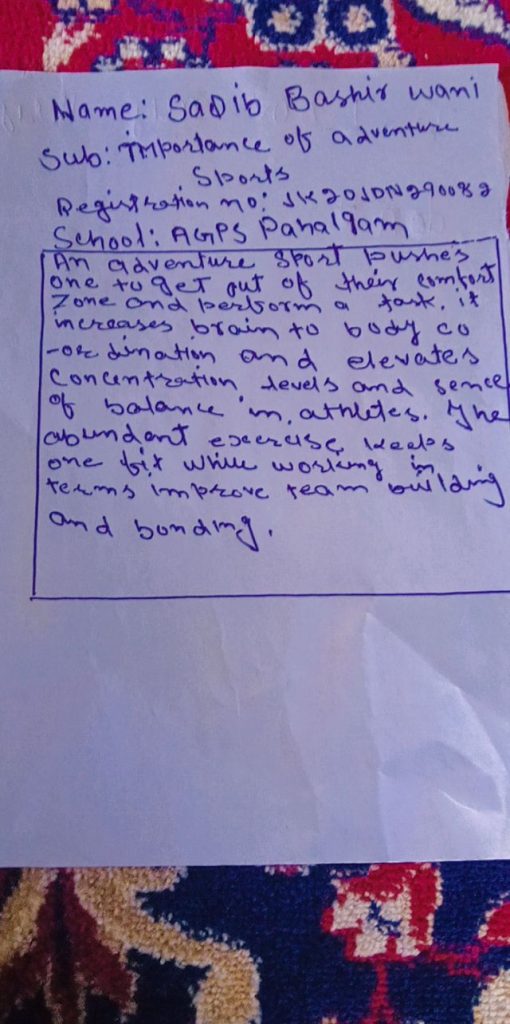 Name: SaQib Bashir wani
Sub: Importance of adventure
Sports
Registration no: JK20JDN290082
School: AGPS Pahalgam
An adventure sport pushes
one to get out of their comfort
Zone and perform a task. it
increases brain to body co
-or dination and elevates
Concentration levels and sence
of balance in athletes. The
abundant exercise keeps
one fit while working in
terms improve team building
and bonding.